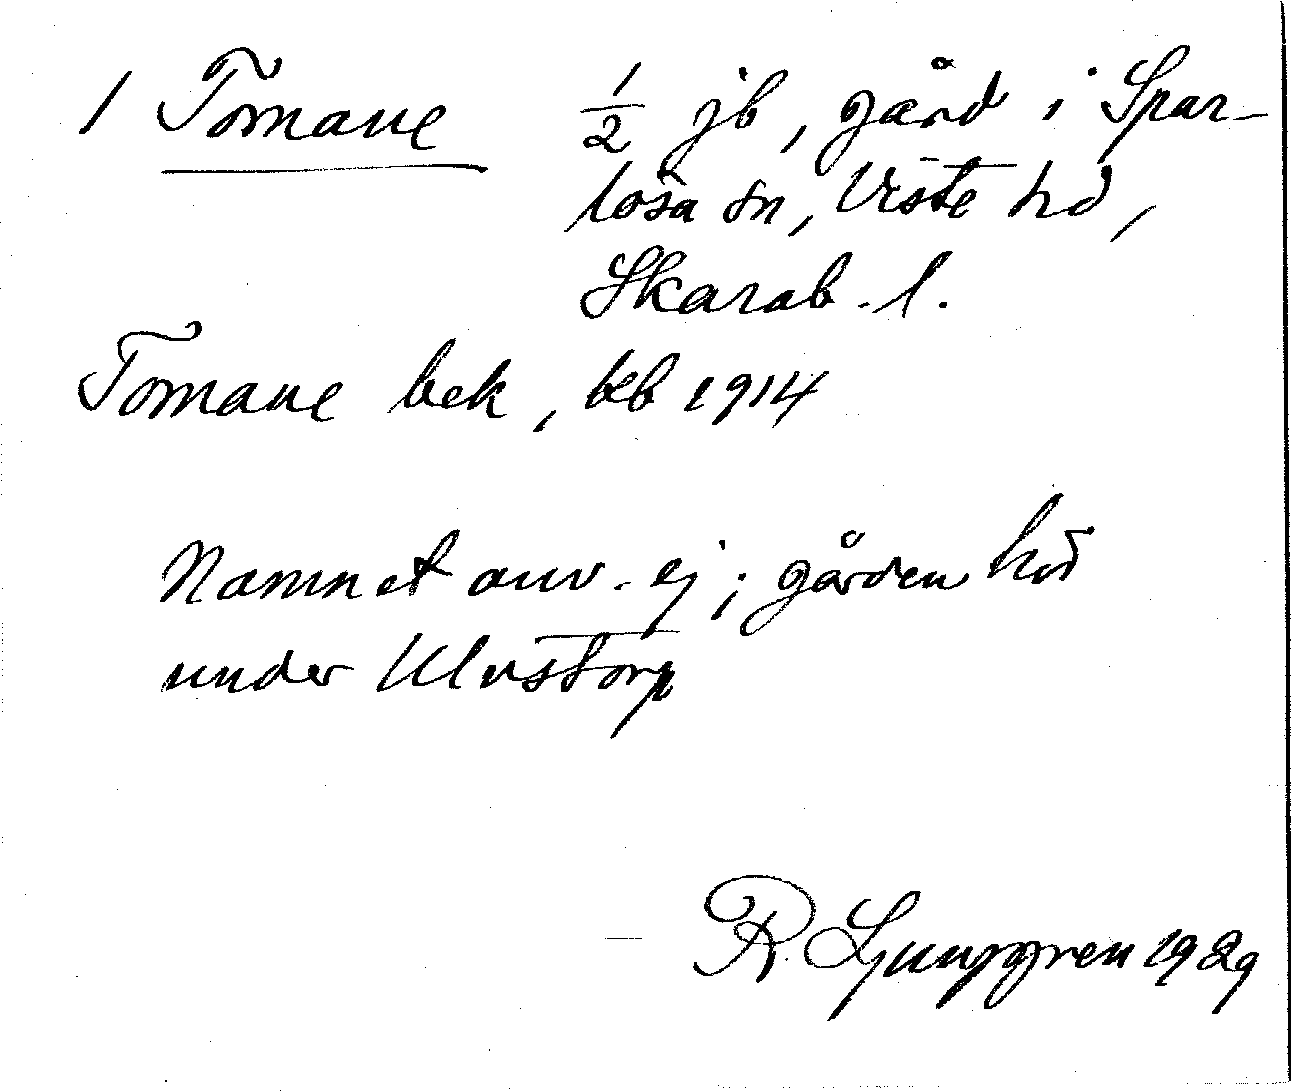 1 Tomane 1/2 jb, gård i Spar-
lösa sn, Viste hd,
Skarab. l.
Tomane bek, beb 1914
Namnet anv. ej; gården hör
under Ulvstorp
R. Ljunggren 1929